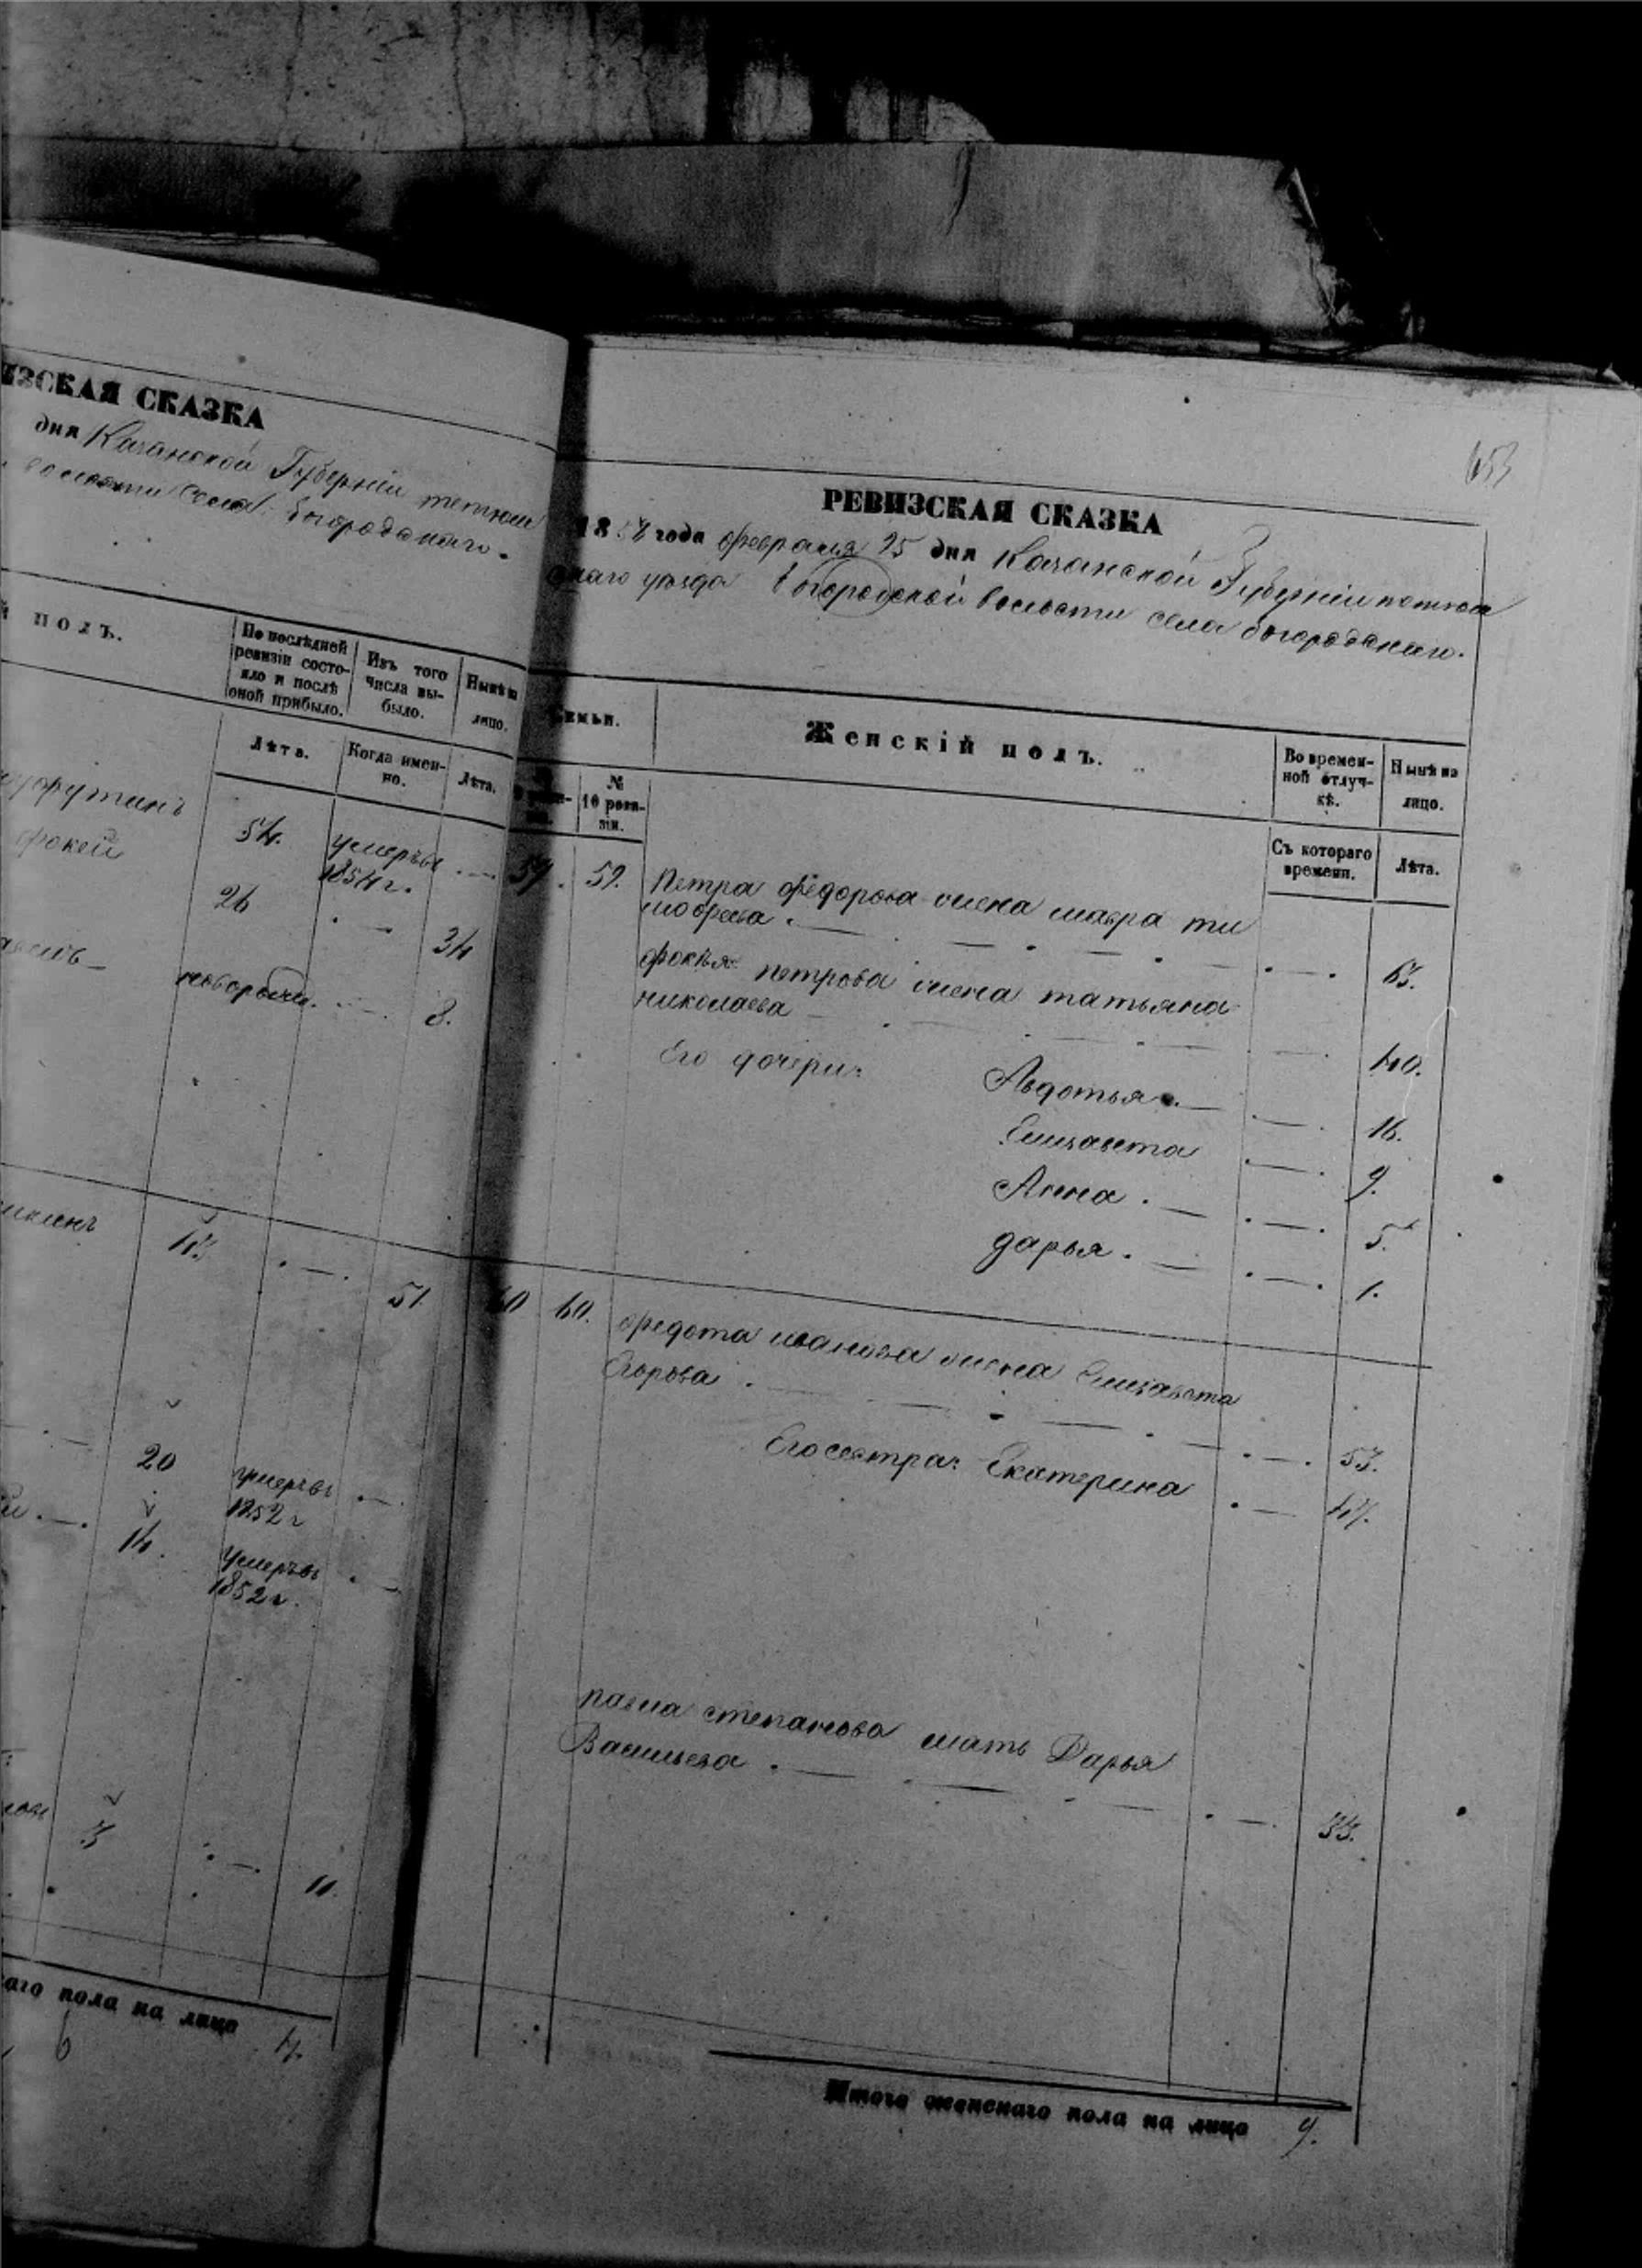 ИЗСКАЯ СКАЗКА
дня Казанской Губерніи тетюш
волости Села Богородскаго.
й полъ.
По послѣдней ревизіи состояло и послѣ оной прибыло.
Изъ того числа выбыло.
Нынѣ на лицо.
Лѣта.
Когда именно.
Лѣта.
54. умеръ въ 1854 г.
фокей 26 34
новорожд. 8.
43 51.
20 умеръ въ 1852 г
14. умеръ въ 1852 г.
3 11.
аго пола на лицо 4.
6
653
РЕВИЗСКАЯ СКАЗКА
1858 года февраля 25 дня Казанской Губерніи тетюш
скаго уѣзда Богородской волости села богородскаго.
Семьи.
Женскій полъ.
Во временной отлучкѣ.
Нынѣ на лицо.
№ 10 ревизіи.
Съ котораго времени.
Лѣта.
59. 59. Петра федорова жена мавра ти
мофеева. 63.
фокѣя петрова жена татьяна
николаева 40.
Его дочери: Авдотья 16.
Елизавета 9.
Анна. 5.
дарья. 1.
60 60. федота иванова жена Елизавета
Егорова. 53.
Его сестра: Екатерина 47.
павла степанова мать Дарья
Васильева. 33.
Итого женскаго пола на лицо 9.